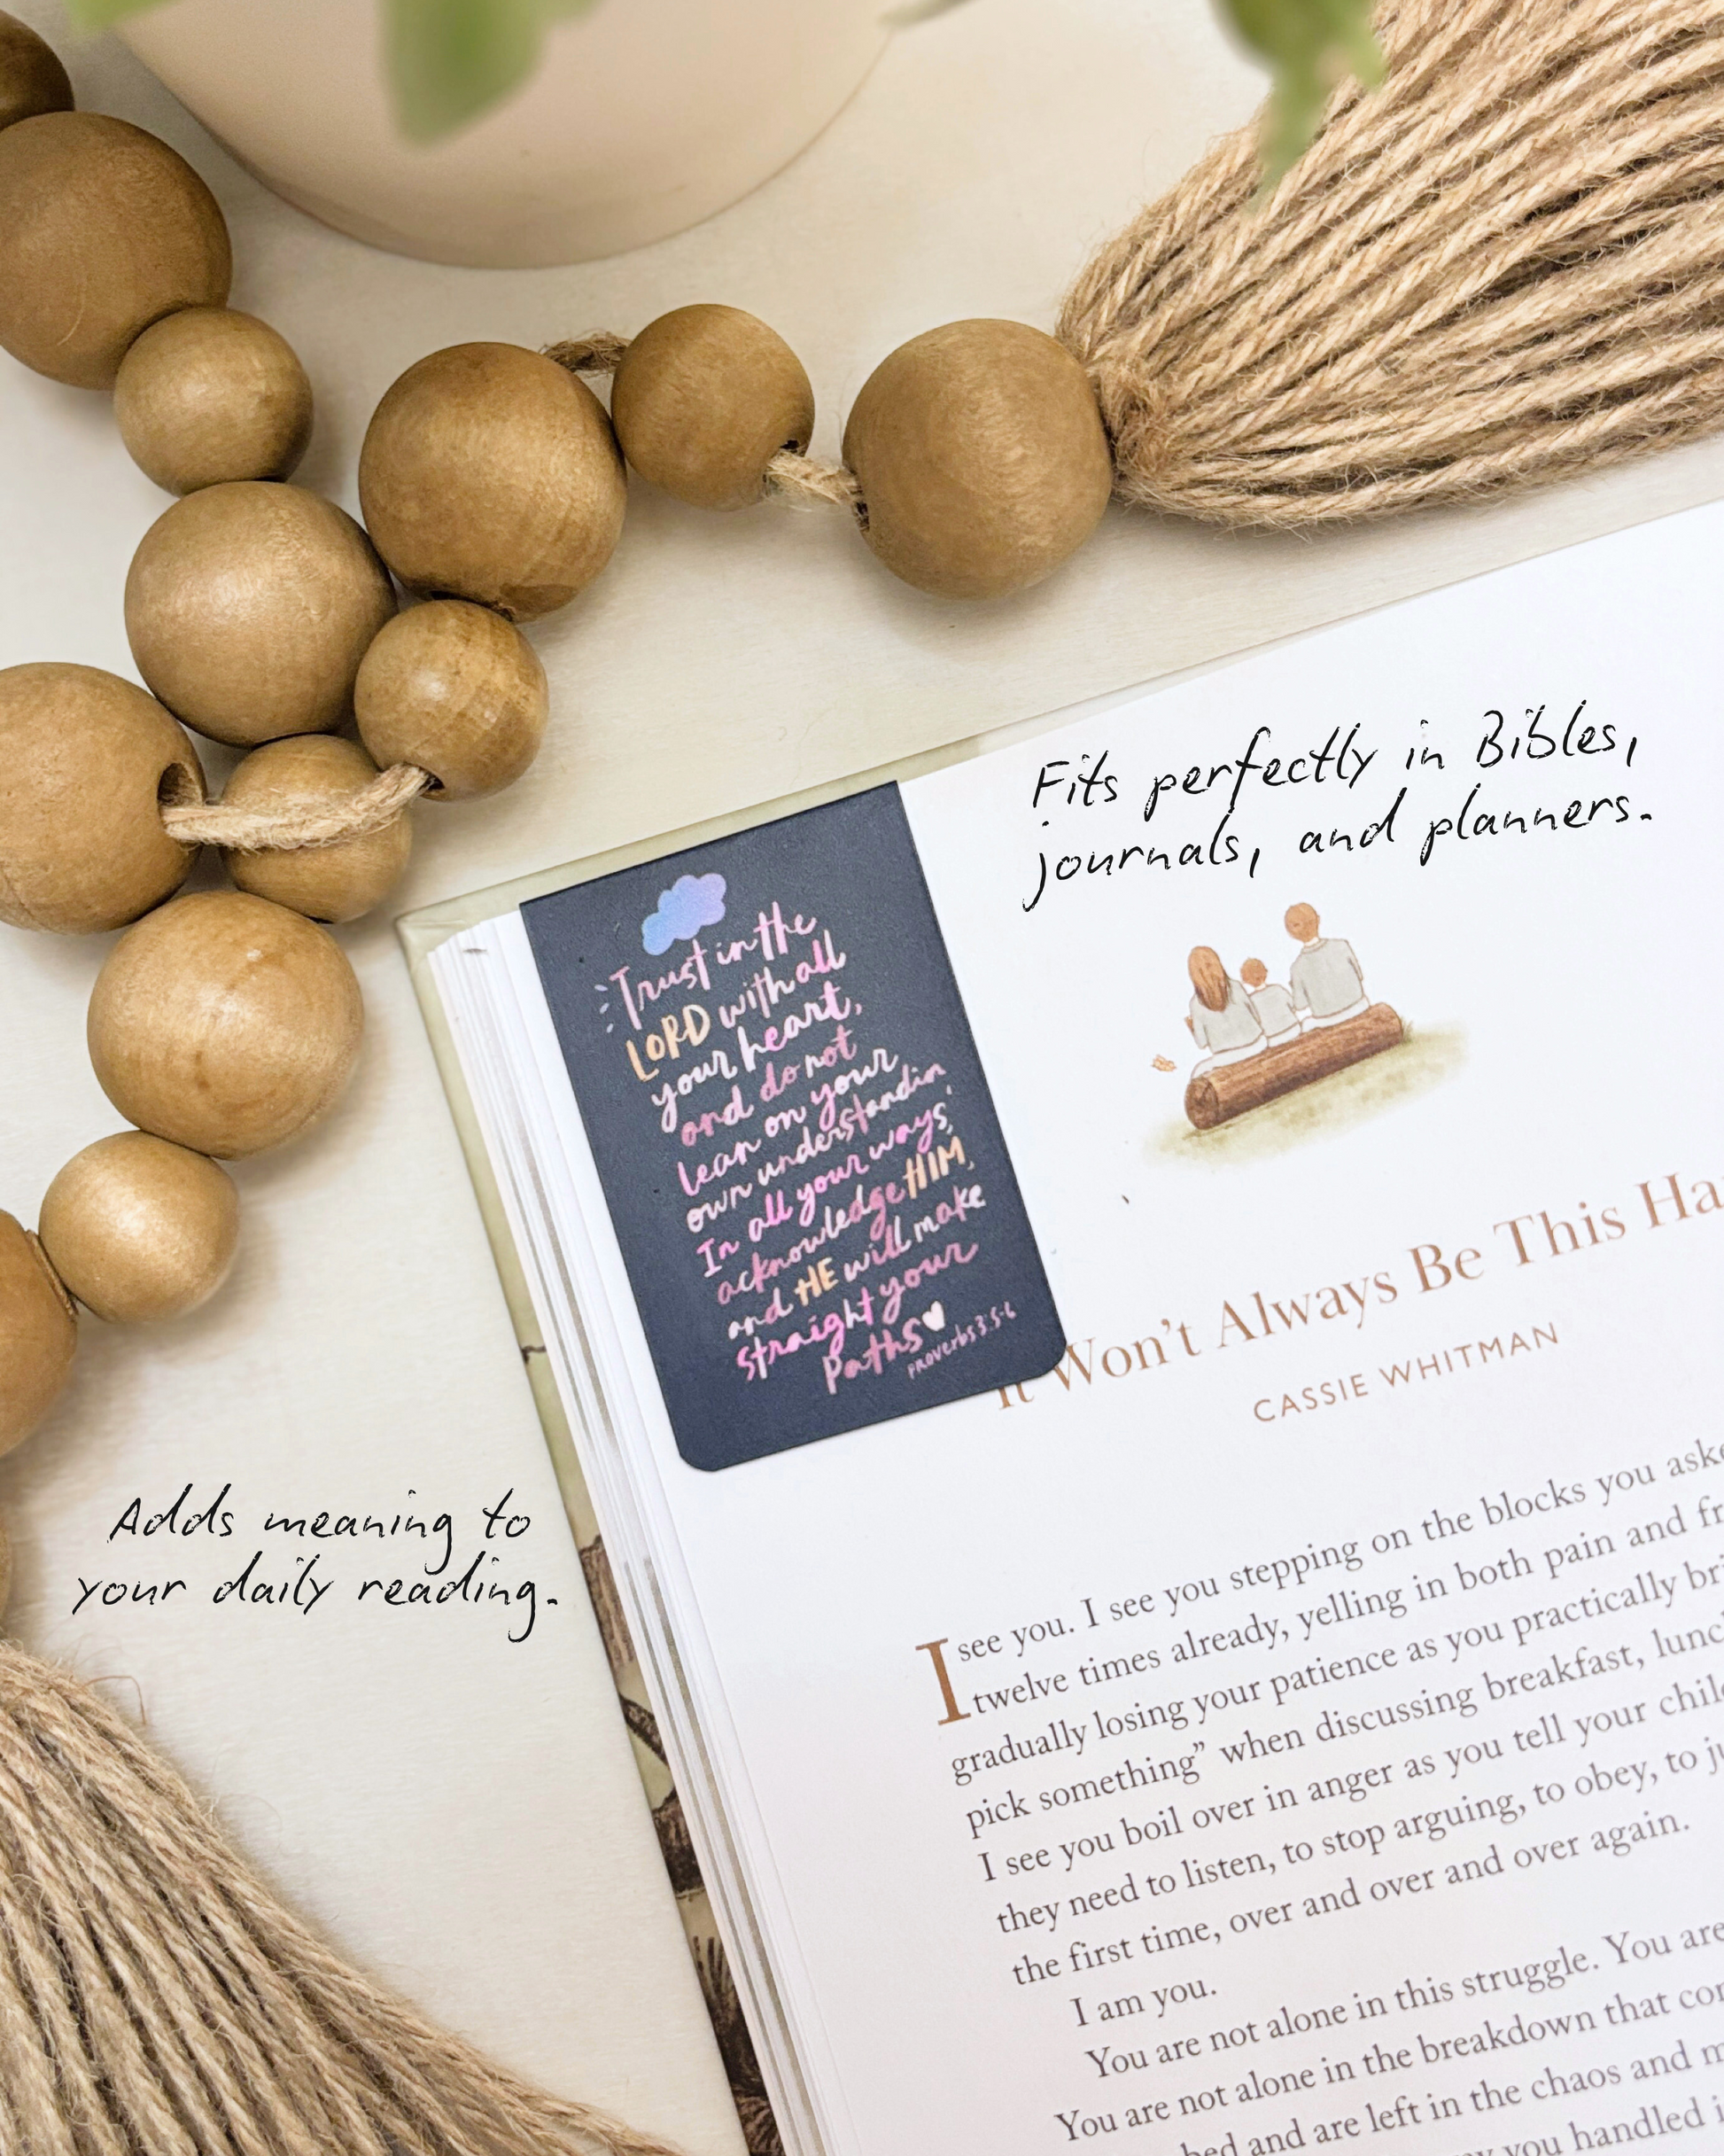 Fits perfectly in Bibles,
journals, and planners.
Trust in the
LORD with all
your heart,
and do not
lean on your
own understandin
In all your ways,
acknowledge HIM,
and HE will make
straight your
Paths
PROverbs 3:5-6
It Won't Always Be This Ha
CASSIE WHITMAN
Adds meaning to
your daily reading.
I see you. I see you stepping on the blocks you aske
twelve times already, yelling in both pain and fr
gradually losing your patience as you practically bri
pick something" when discussing breakfast, lunc
I see you boil over in anger as you tell your chil
they need to listen, to stop arguing, to obey, to ju
the first time, over and over and over again.
I am you.
You are not alone in this struggle. You are
You are not alone in the breakdown that cor
and are left in the chaos and m
you handled i